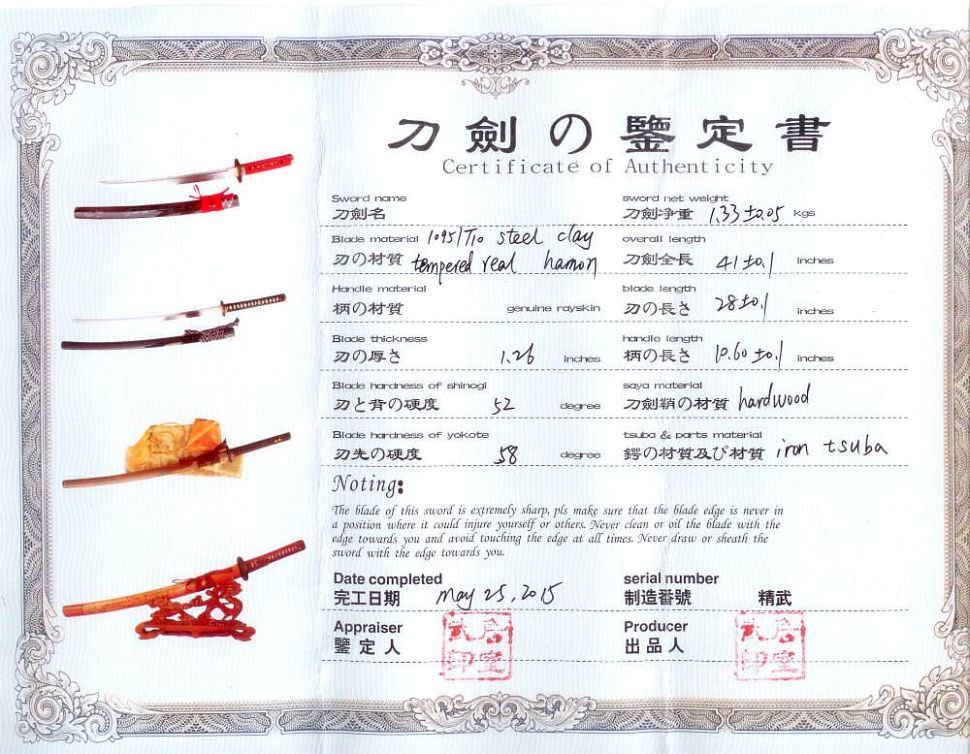 刀劍の鑒定書
Certificate of Authenticity
Sword name
刀劍名
sword net weight
刀劍净重 1.33 ±0.05 kgs
Blade material 1095/T10 steel clay
刃の材質 tempered real hamon
overall length
刀劍全長 41 ±0.1 inches
Handle material
柄の材質 genuine rayskin
blade length
刃の長さ 28 ±0.1 inches
Blade thickness
刃の厚さ 1.26 inches
handle length
柄の長さ 10.60 ±0.1 inches
Blade hardness of shinogi
刃と背の硬度 52 degree
saya material
刀劍鞘の材質 hardwood
Blade hardness of yokote
刃先の硬度 58 degree
tsuba & parts material
鍔の材質及び材質 iron tsuba
Noting:
The blade of this sword is extremely sharp, pls make sure that the blade edge is never in
a position where it could injure yourself or others. Never clean or oil the blade with the
edge towards you and avoid touching the edge at all times. Never draw or sheath the
sword with the edge towards you.
Date completed
完工日期 may 25, 2015
serial number
制造番號 精武
Appraiser
鑒定人
Producer
出品人